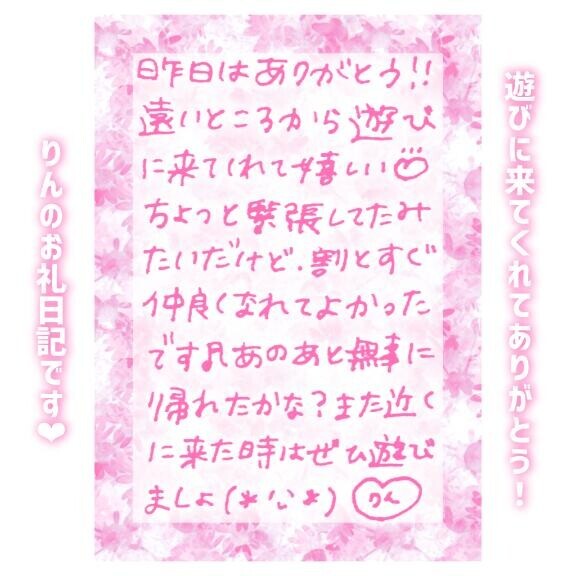 遊びに来てくれてありがとう!
昨日はありがとう!!
遠いところから遊び
に来てくれて嬉しい♡
ちょっと緊張してたみ
たいだけど、割とすぐ
仲良くなれてよかった
です♬あのあと無事に
帰れたかな?また近く
に来た時はぜひ遊び
ましょ(*'ᴗ'*) りん
りんのお礼日記です❤